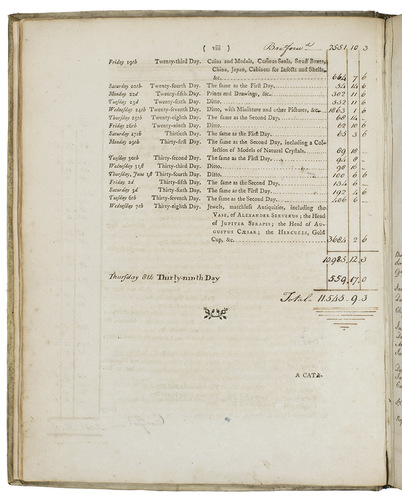 ( viii ) 7551 10 3
Friday 19th Twenty-third Day. Coins and Medals, Curious Seals, Snuff Boxes,
China, Japan, Cabinets for Insects and Shells,
&c. 664 7 6
Saturday 20th Twenty-fourth Day. The same as the First Day. 54 14 6
Monday 22d Twenty-fifth Day. Prints and Drawings, &c. 302 11 6
Tuesday 23d Twenty-sixth Day. Ditto. 552 11 6
Wednesday 24th Twenty-seventh Day. Ditto, with Miniature and other Pictures, &c. 1863 1 6
Thursday 25th Twenty-eighth Day. The same as the Second Day. 68 14
Friday 26th Twenty-ninth Day. Ditto. 60 10 6
Saturday 27th Thirtieth Day. The same as the First Day. 63 3 6
Monday 29th Thirty-first Day. The same as the Second Day, including a Col-
lection of Models of Natural Crystals. 89 18
Tuesday 30th Thirty-second Day. The same as the First Day. 94 8
Wednesday 31st Thirty-third Day. Ditto. 98 16
Thursday, June 1st Thirty-fourth Day. Ditto. 100 6 6
Friday 2d Thirty-fifth Day. The same as the Second Day. 154 6
Saturday 3d Thirty-sixth Day. The same as the First Day. 192 4 6
Tuesday 6th Thirty-seventh Day. The same as the Second Day. 406 6
Wednesday 7th Thirty-eighth Day. Jewels, matchless Antiquities, including the
VASE, of ALEXANDER SERVERUS; the Head
of JUPITER SERAPIS; the Head of AU-
GUSTUS CÆSAR; the HERCULES, Gold
Cup, &c. 3684 2 6
10,985 12 3
Thursday 8th Thirty-ninth Day 559 17 0
Total 11.545 9 3
A CATA-